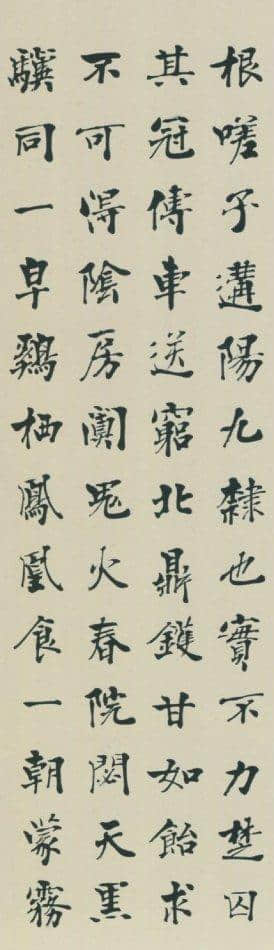 根嗟予遘陽九隸也實不力楚囚
其冠傳車送窮北鼎鑊甘如飴求
不可得陰房闃鬼火春院閟天黑
驥同一皁鷄栖鳳凰食一朝蒙霧